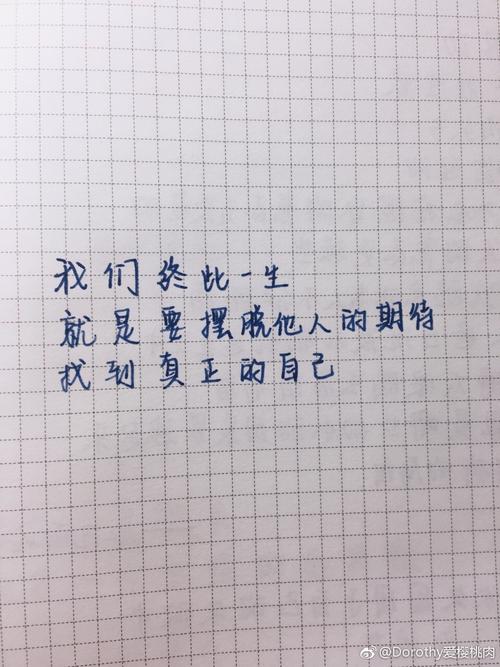 我们终此一生
就是要摆脱他人的期待
找到真正的自己
@Dorothy爱樱桃肉